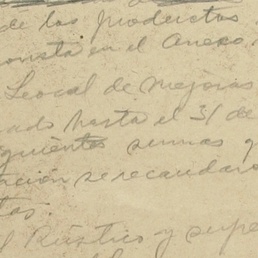 de los productos
consta en el Anexo
Local de Mejoras
hasta el 31 de
sumas q
se recaudar
tos.
Rústico y supe